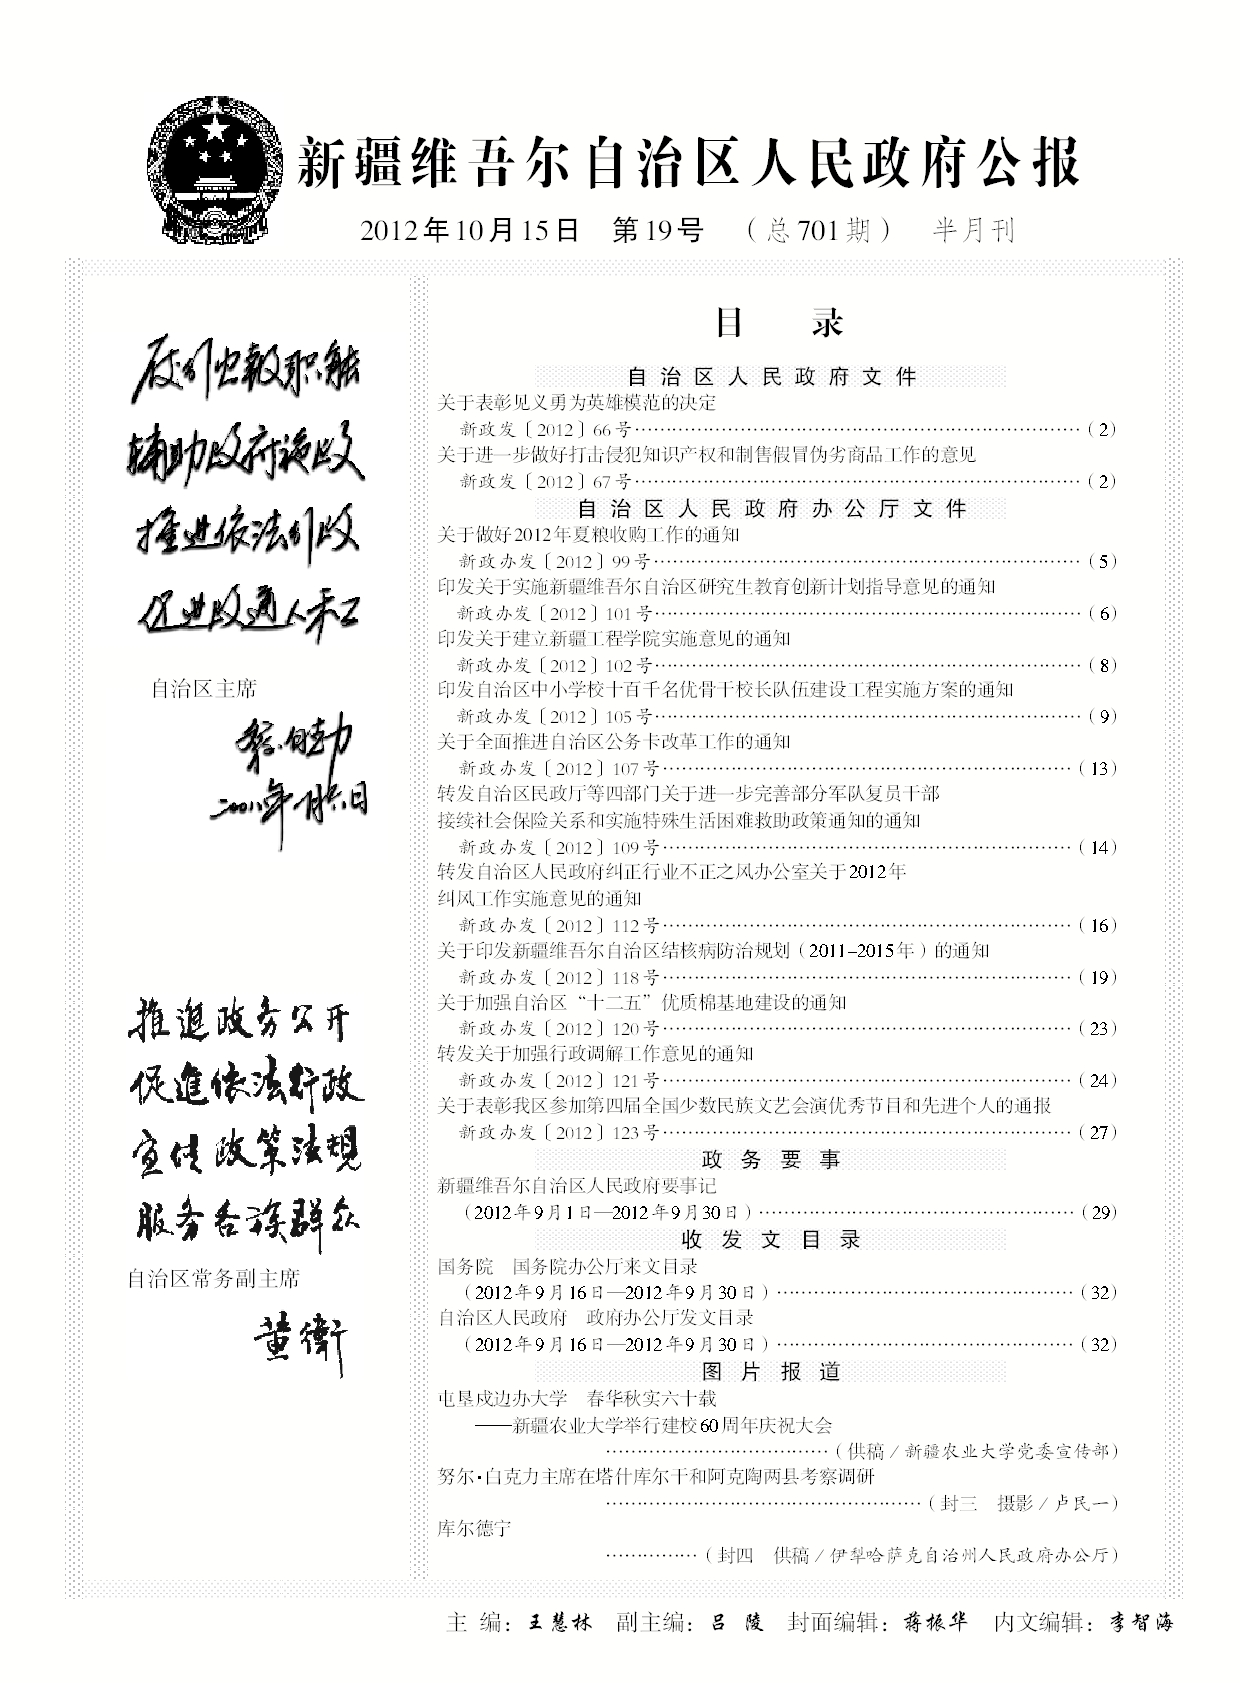 新疆维吾尔自治区人民政府公报
2012年10月15日 第19号 （总701期） 半月刊
辅助政府施政
推进依法行政
促进政通人和
自治区主席
推進政务公开
促進依法行政
宣传政策法规
服务各族群众
自治区常务副主席
董衛
目 录
自治区人民政府文件
关于表彰见义勇为英雄模范的决定
新政发〔2012〕66号……………………………（2）
关于进一步做好打击侵犯知识产权和制售假冒伪劣商品工作的意见
新政发〔2012〕67号……………………………（2）
自治区人民政府办公厅文件
关于做好2012年夏粮收购工作的通知
新政办发〔2012〕99号……………………………（5）
印发关于实施新疆维吾尔自治区研究生教育创新计划指导意见的通知
新政办发〔2012〕101号……………………………（6）
印发关于建立新疆工程学院实施意见的通知
新政办发〔2012〕102号……………………………（8）
印发自治区中小学校十百千名优骨干校长队伍建设工程实施方案的通知
新政办发〔2012〕105号……………………………（9）
关于全面推进自治区公务卡改革工作的通知
新政办发〔2012〕107号……………………………（13）
转发自治区民政厅等四部门关于进一步完善部分军队复员干部
接续社会保险关系和实施特殊生活困难救助政策通知的通知
新政办发〔2012〕109号……………………………（14）
转发自治区人民政府纠正行业不正之风办公室关于2012年
纠风工作实施意见的通知
新政办发〔2012〕112号……………………………（16）
关于印发新疆维吾尔自治区结核病防治规划（2011–2015年）的通知
新政办发〔2012〕118号……………………………（19）
关于加强自治区“十二五”优质棉基地建设的通知
新政办发〔2012〕120号……………………………（23）
转发关于加强行政调解工作意见的通知
新政办发〔2012〕121号……………………………（24）
关于表彰我区参加第四届全国少数民族文艺会演优秀节目和先进个人的通报
新政办发〔2012〕123号……………………………（27）
政务要事
新疆维吾尔自治区人民政府要事记
（2012年9月1日—2012年9月30日）……………………………（29）
收发文目录
国务院 国务院办公厅来文目录
（2012年9月16日—2012年9月30日）……………………………（32）
自治区人民政府 政府办公厅发文目录
（2012年9月16日—2012年9月30日）……………………………（32）
图片报道
屯垦戍边办大学 春华秋实六十载
——新疆农业大学举行建校60周年庆祝大会
……………………………（供稿/新疆农业大学党委宣传部）
努尔·白克力主席在塔什库尔干和阿克陶两县考察调研
……………………………（封三 摄影/卢民一）
库尔德宁
……………（封四 供稿/伊犁哈萨克自治州人民政府办公厅）
主 编：王慧林 副主编：吕 陵 封面编辑：蒋振华 内文编辑：李智海